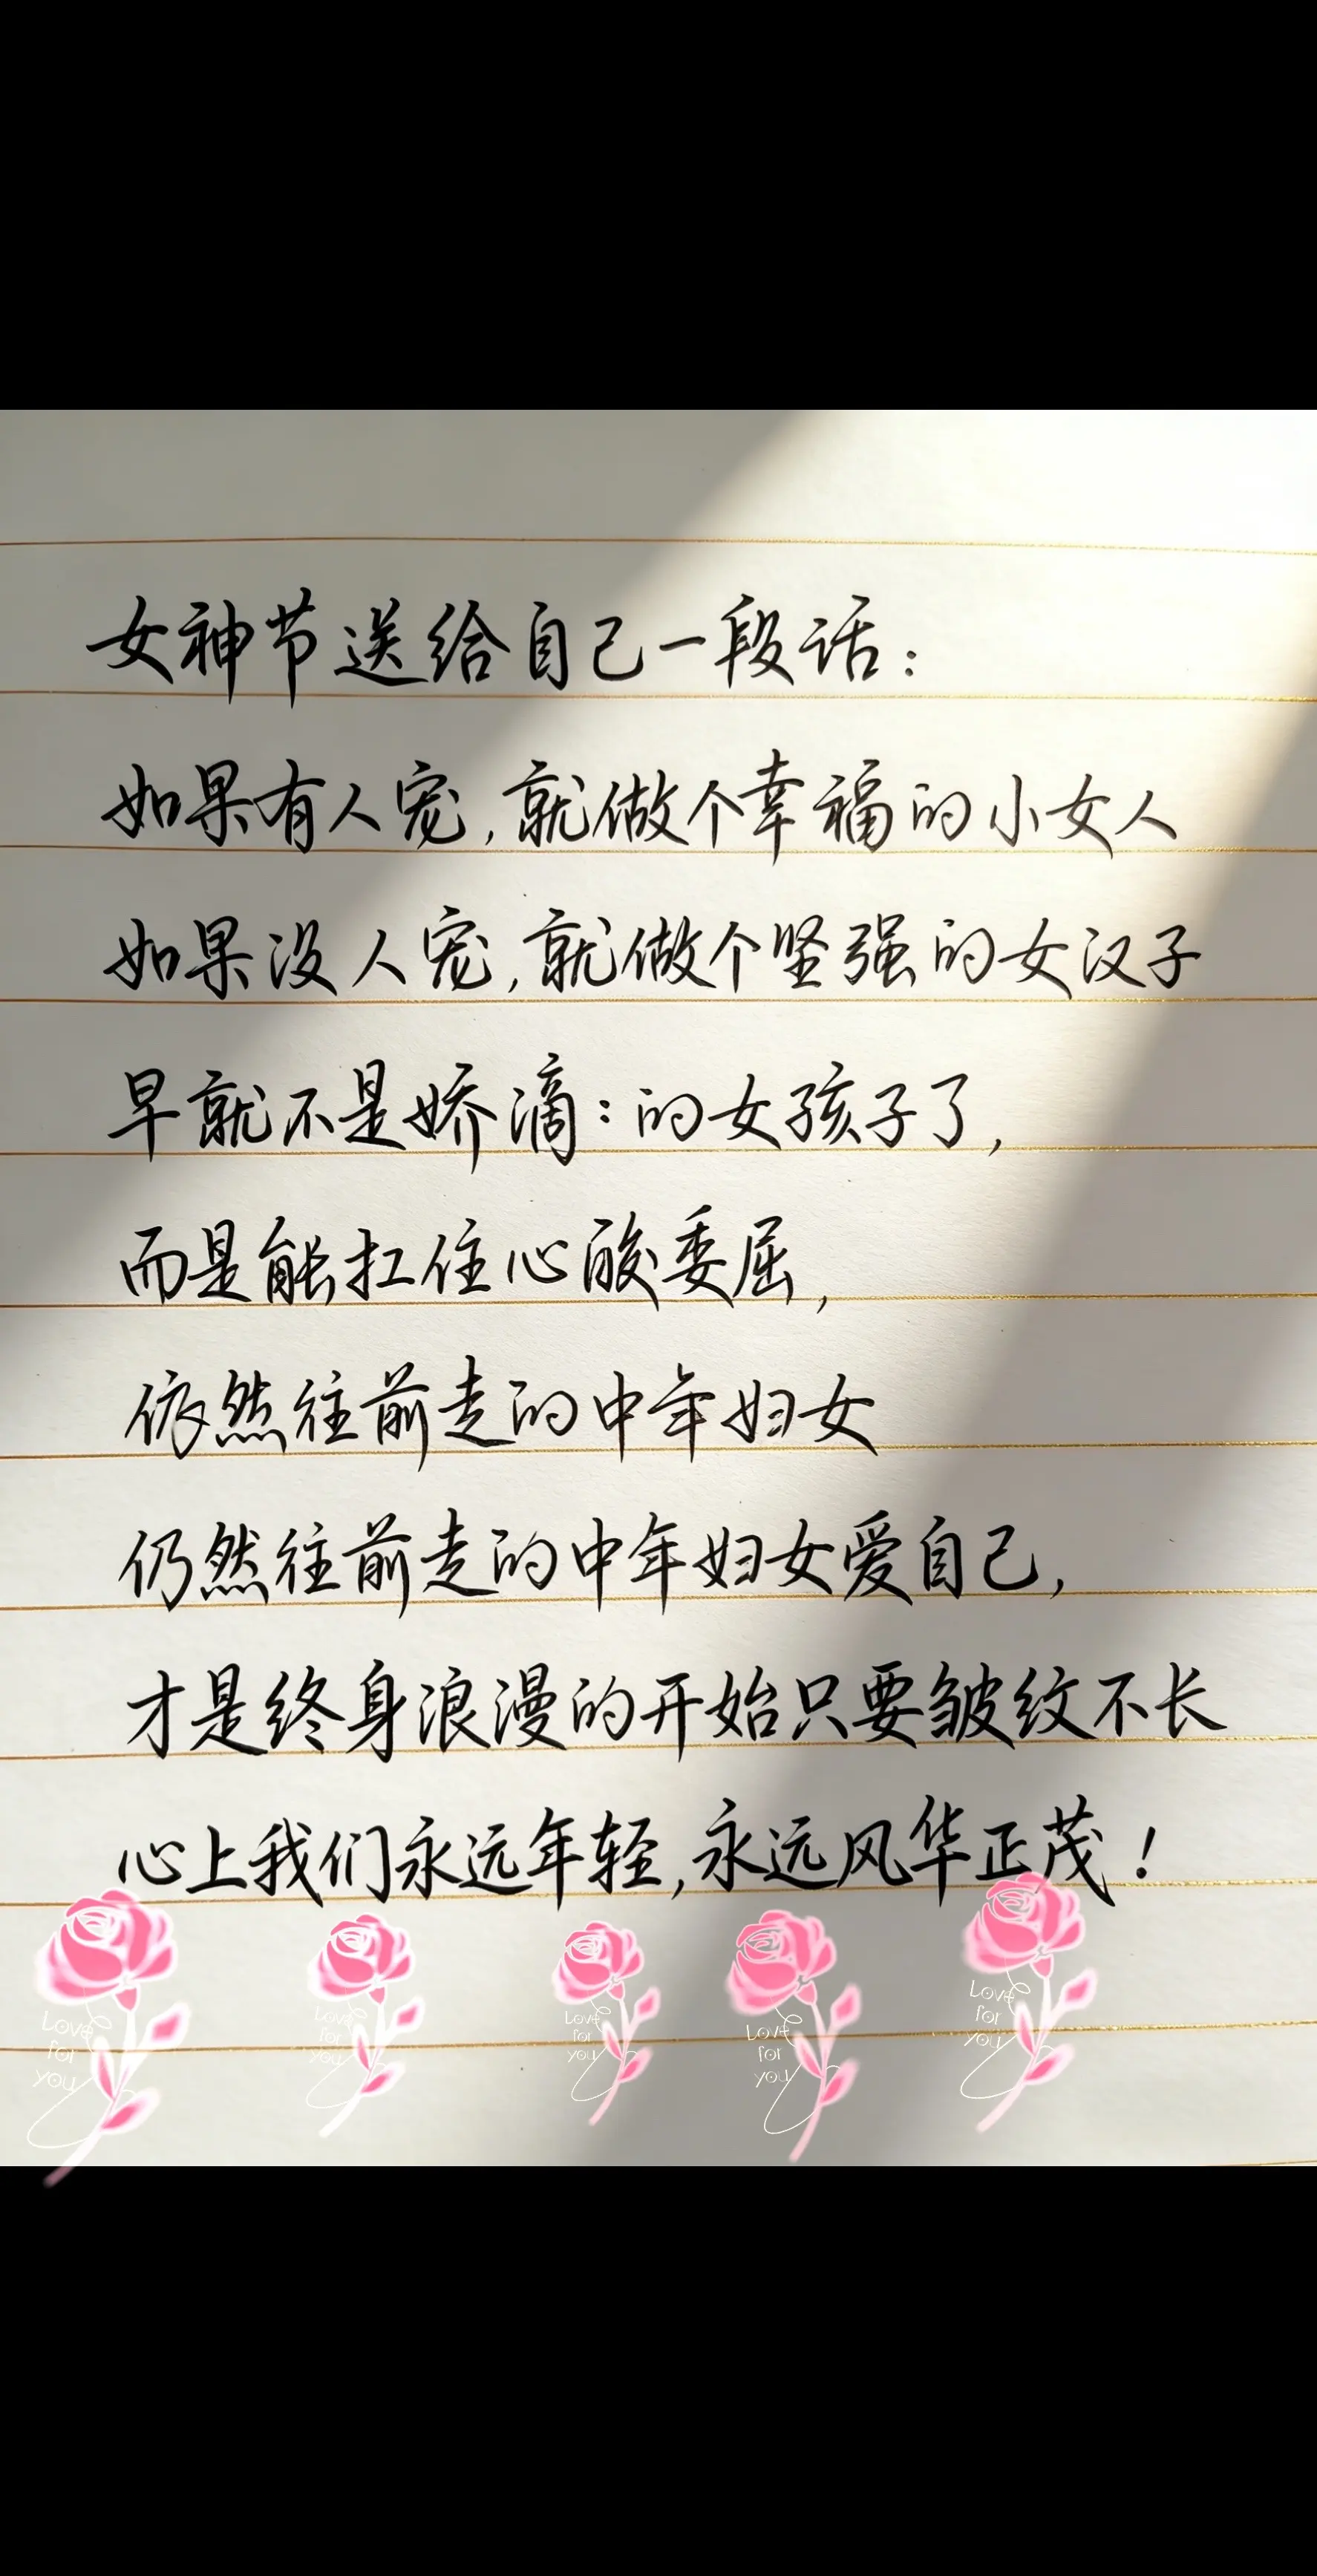 女神节送给自己一段话：
如果有人宠,就做个幸福的小女人
如果没人宠,就做个坚强的女汉子
早就不是娇滴:的女孩子了,
而是能扛住心酸委屈,
依然往前走的中年妇女
仍然往前走的中年妇女爱自己,
才是终身浪漫的开始只要皱纹不长
心上我们永远年轻,永远风华正茂！
Love
for
you
Love
for
you
Love
for
you
Love
for
you
Love
for
you